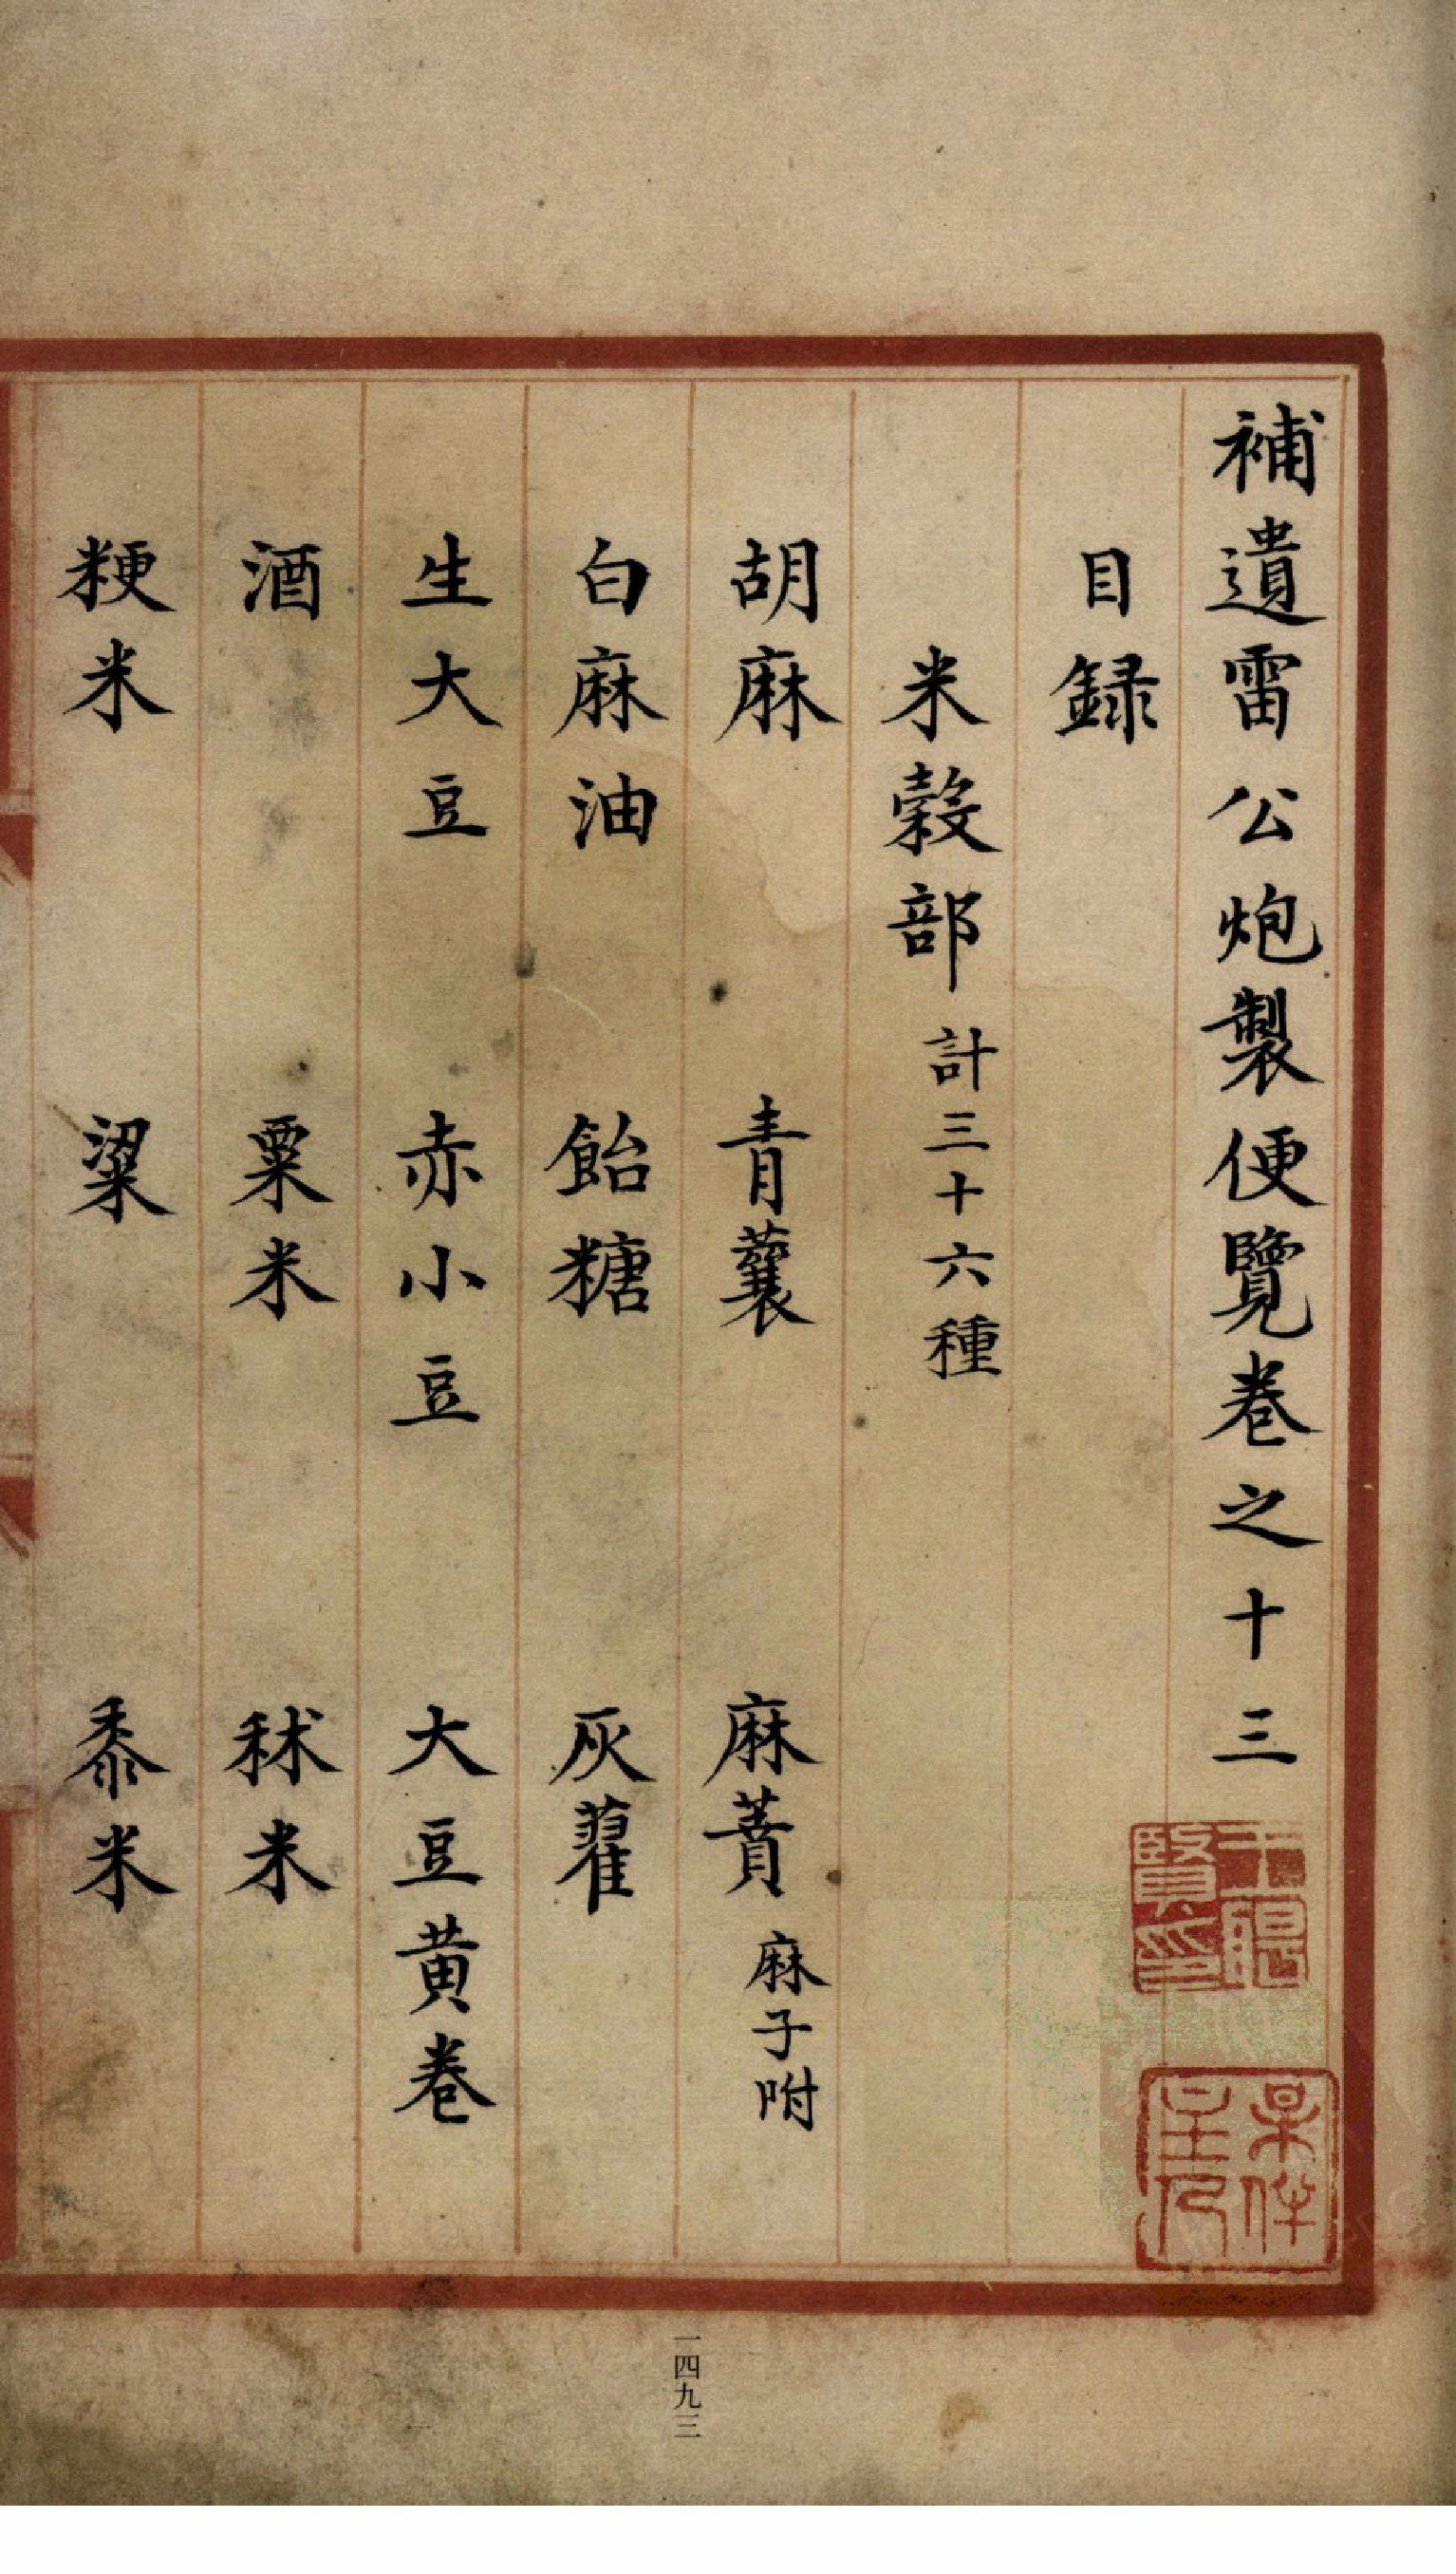 補遺雷公炮製便覽卷之十三
目録
米穀部 計三十六種
胡麻 青蘘 麻蕡 麻子咐
白麻油 飴糖 灰藋
生大豆 赤小豆 大豆黄卷
酒 粟米 秫米
粳米 粱 黍米
一四九三